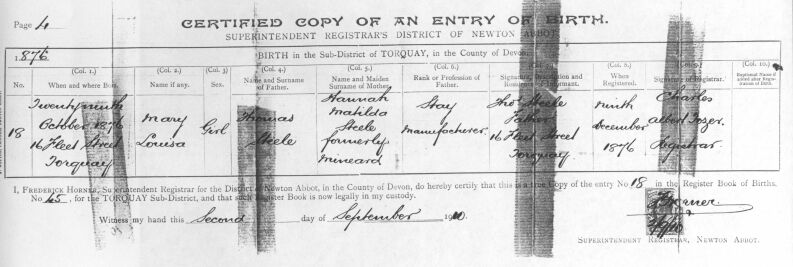 Page 4
CERTIFIED COPY OF AN ENTRY OF BIRTH.
SUPERINTENDENT REGISTRAR'S DISTRICT OF NEWTON ABBOT
1876 BIRTH in the Sub-District of TORQUAY, in the County of Devon
(Col. 1.) (Col. 2.) (Col. 3.) (Col. 4.) (Col. 5.) (Col. 6.) (Col. 7.) (Col. 8.) (Col. 9.) (Col. 10.)
No. When and where Born. Name if any. Sex. Name and Surname of Father. Name and Maiden Surname of Mother. Rank or Profession of Father. Signature, Description and Residence of Informant. When Registered. Signature of Registrar. Baptismal Name if added after Registration of Birth.
18 Twenty ninth October 1876 16 Fleet Street Torquay
Mary Louisa
Girl
Thomas Steele
Hannah Matilda Steele formerly Mineard
Stay Manufacturer
Thos Steele Father 16 Fleet Street Torquay
Ninth December 1876
Charles Albert Tozer Registrar
I, FREDERICK HORNER, Superintendent Registrar for the District of Newton Abbot, in the County of Devon, do hereby certify that this is a true Copy of the entry No 18 in the Register Book of Births.
No 45, for the TORQUAY Sub-District, and that such Register Book is now legally in my custody.
Witness my hand this Second day of September 1910.
F Horner
SUPERINTENDENT REGISTRAR, NEWTON ABBOT.